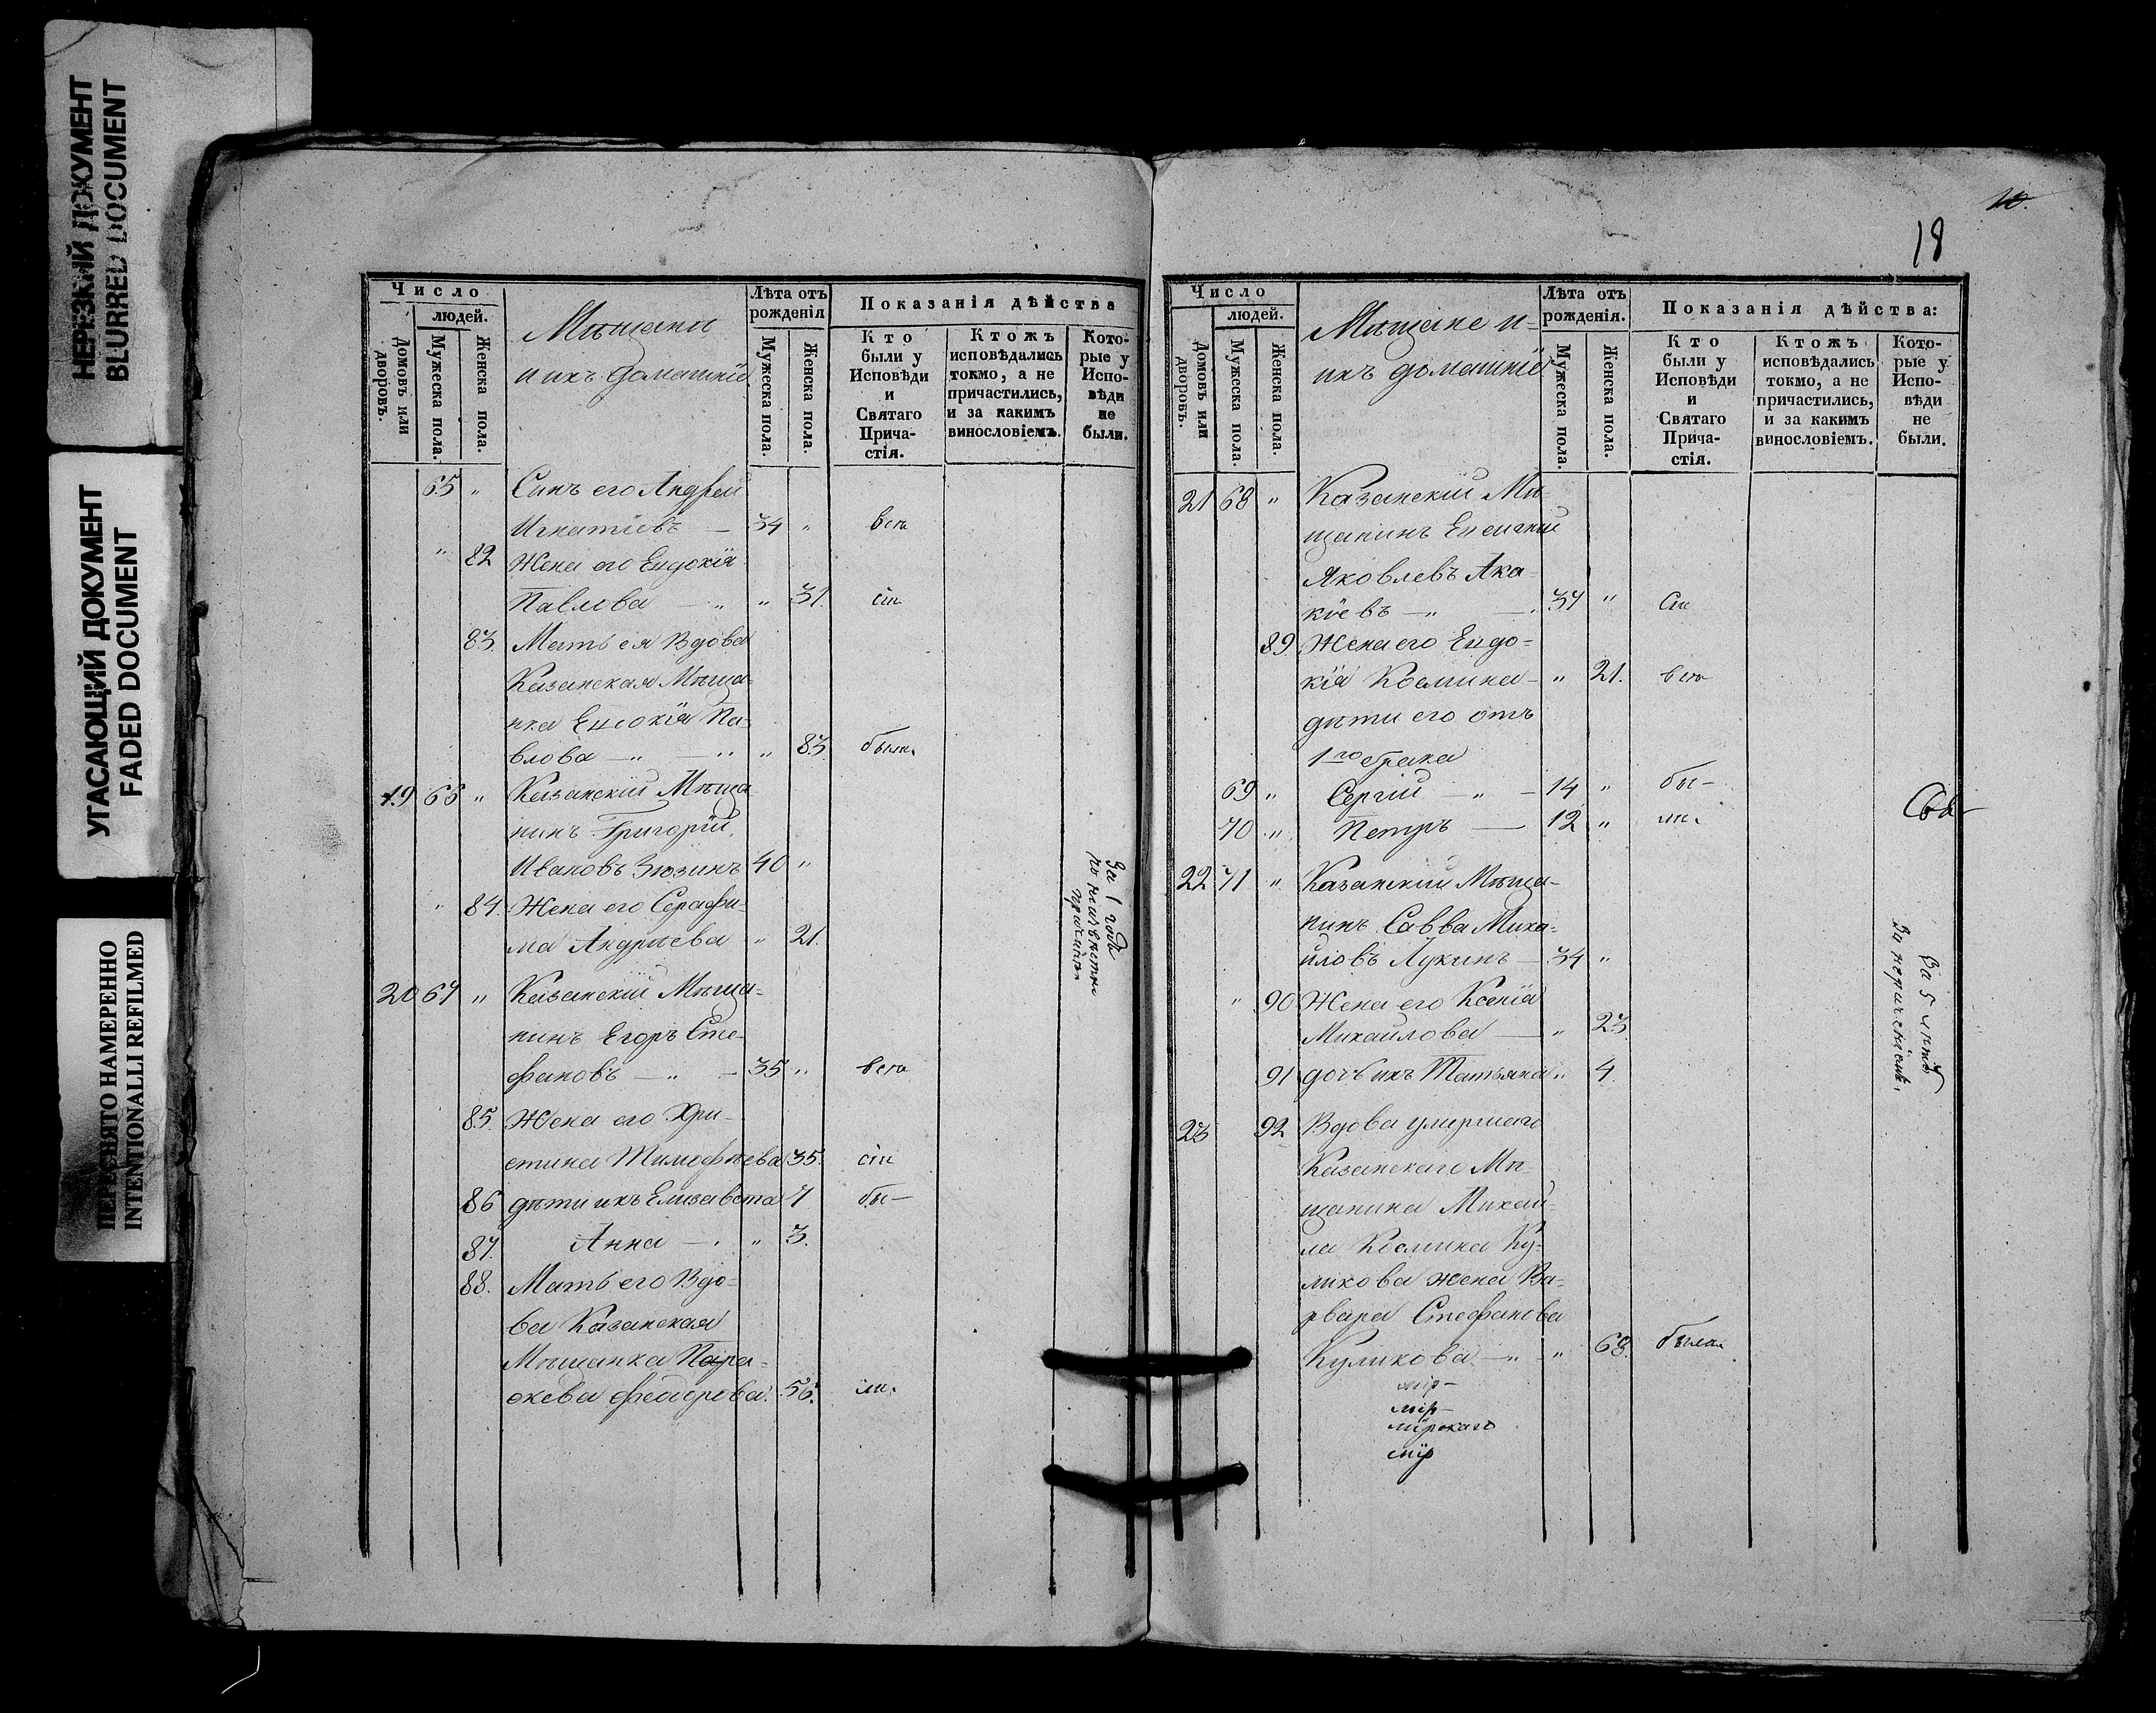 НЕРЕЗКИЙ ДОКУМЕНТ
BLURRED DOCUMENT
УГАСАЮЩИЙ ДОКУМЕНТ
FADED DOCUMENT
ПЕРЕСНЯТО НАМЕРЕННО
INTENTIONALLI REFILMED
Число
людей.
Домовъ или дворовъ.
Мужеска пола.
Женска пола.
Мѣщане
и ихъ домашніе
Лѣта отъ
рожденія
Мужеска пола.
Женска пола.
Показанія дѣйства
Кто
были у
Исповѣди
и
Святаго
Прича-
стія.
Ктожъ
исповѣдались
токмо, а не
причастились,
и за какимъ
винословіемъ.
Кото-
рые у
Испо-
вѣди
не
были.
65 " Сынъ его Андрей
Игнатіевъ — 34 "
" 82 Жена его Евдокія
Павлова — " " 31.
83. Мать ея Вдова
Казанская Мѣща-
нка Евдокія Па-
влова — " — " " 83. была
19 66 " Казанскій Мѣща-
нинъ Григорій
Ивановъ Зюзинъ 40 "
" 84. Жена его Серафи-
ма Андріева " 21.
За 1 годъ
20 67 " Казанскій Мѣща-
нинъ Егоръ Сте-
фановъ — " — 35 "
85. Жена его Хри-
стина Тимофѣева 35.
86 дѣти ихъ Елизавета 7 бы-
87. Анна — " " 3.
88. Мать его Вдо-
ва Казанская
Мѣщанка Пара-
скева Феодорова. 56. ли.
10.
18
Число
людей.
Домовъ или дворовъ.
Мужеска пола.
Женска пола.
Мѣщане и-
ихъ домашніе
Лѣта отъ
рожденія.
Мужеска пола.
Женска пола.
Показанія дѣйства:
Кто
были у
Исповѣди
и
Святаго
Прича-
стія.
Ктожъ
исповѣдались
токмо, а не
причастились,
и за какимъ
винословіемъ.
Кото-
рые у
Испо-
вѣди
не
были.
21 68 " Казанскій Мѣ-
щанинъ Евсигній
Яковлевъ Ака-
кіевъ — " — 37 "
89. Жена его Евдо-
кія Космина — " 21.
дѣти его отъ
1го брака
69 " Сергій — " — 14 " бы-
70 " Петръ — 12 " ли.
22 71 " Казанскій Мѣща-
нинъ Савва Миха-
йловъ Лукинъ — 34 "
" 90 Жена его Ксенія
Михайлова — " 23
91 дочь ихъ Татьяна " 4.
За 5 лѣтъ
23 92 Вдова умершаго
Казанскаго Мѣ-
щанина Михай-
ла Космина Ку-
ликова жена Ва-
рвара Стефанова
Куликова — " " 68. была
мір-
мір-
мірскаго
мір